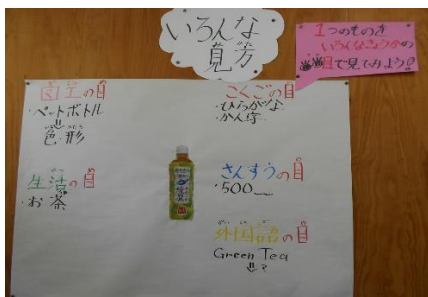 いろんな
見方
1つのものを
いろんなきょうかの
目で見てみよう!
図工の目
・ペットボトル
⇓
色・形
生活の目
・お茶
こくごの目
・ひらがな
・かん字
さんすうの目
・500
外国語の目
Green Tea
⇓
?